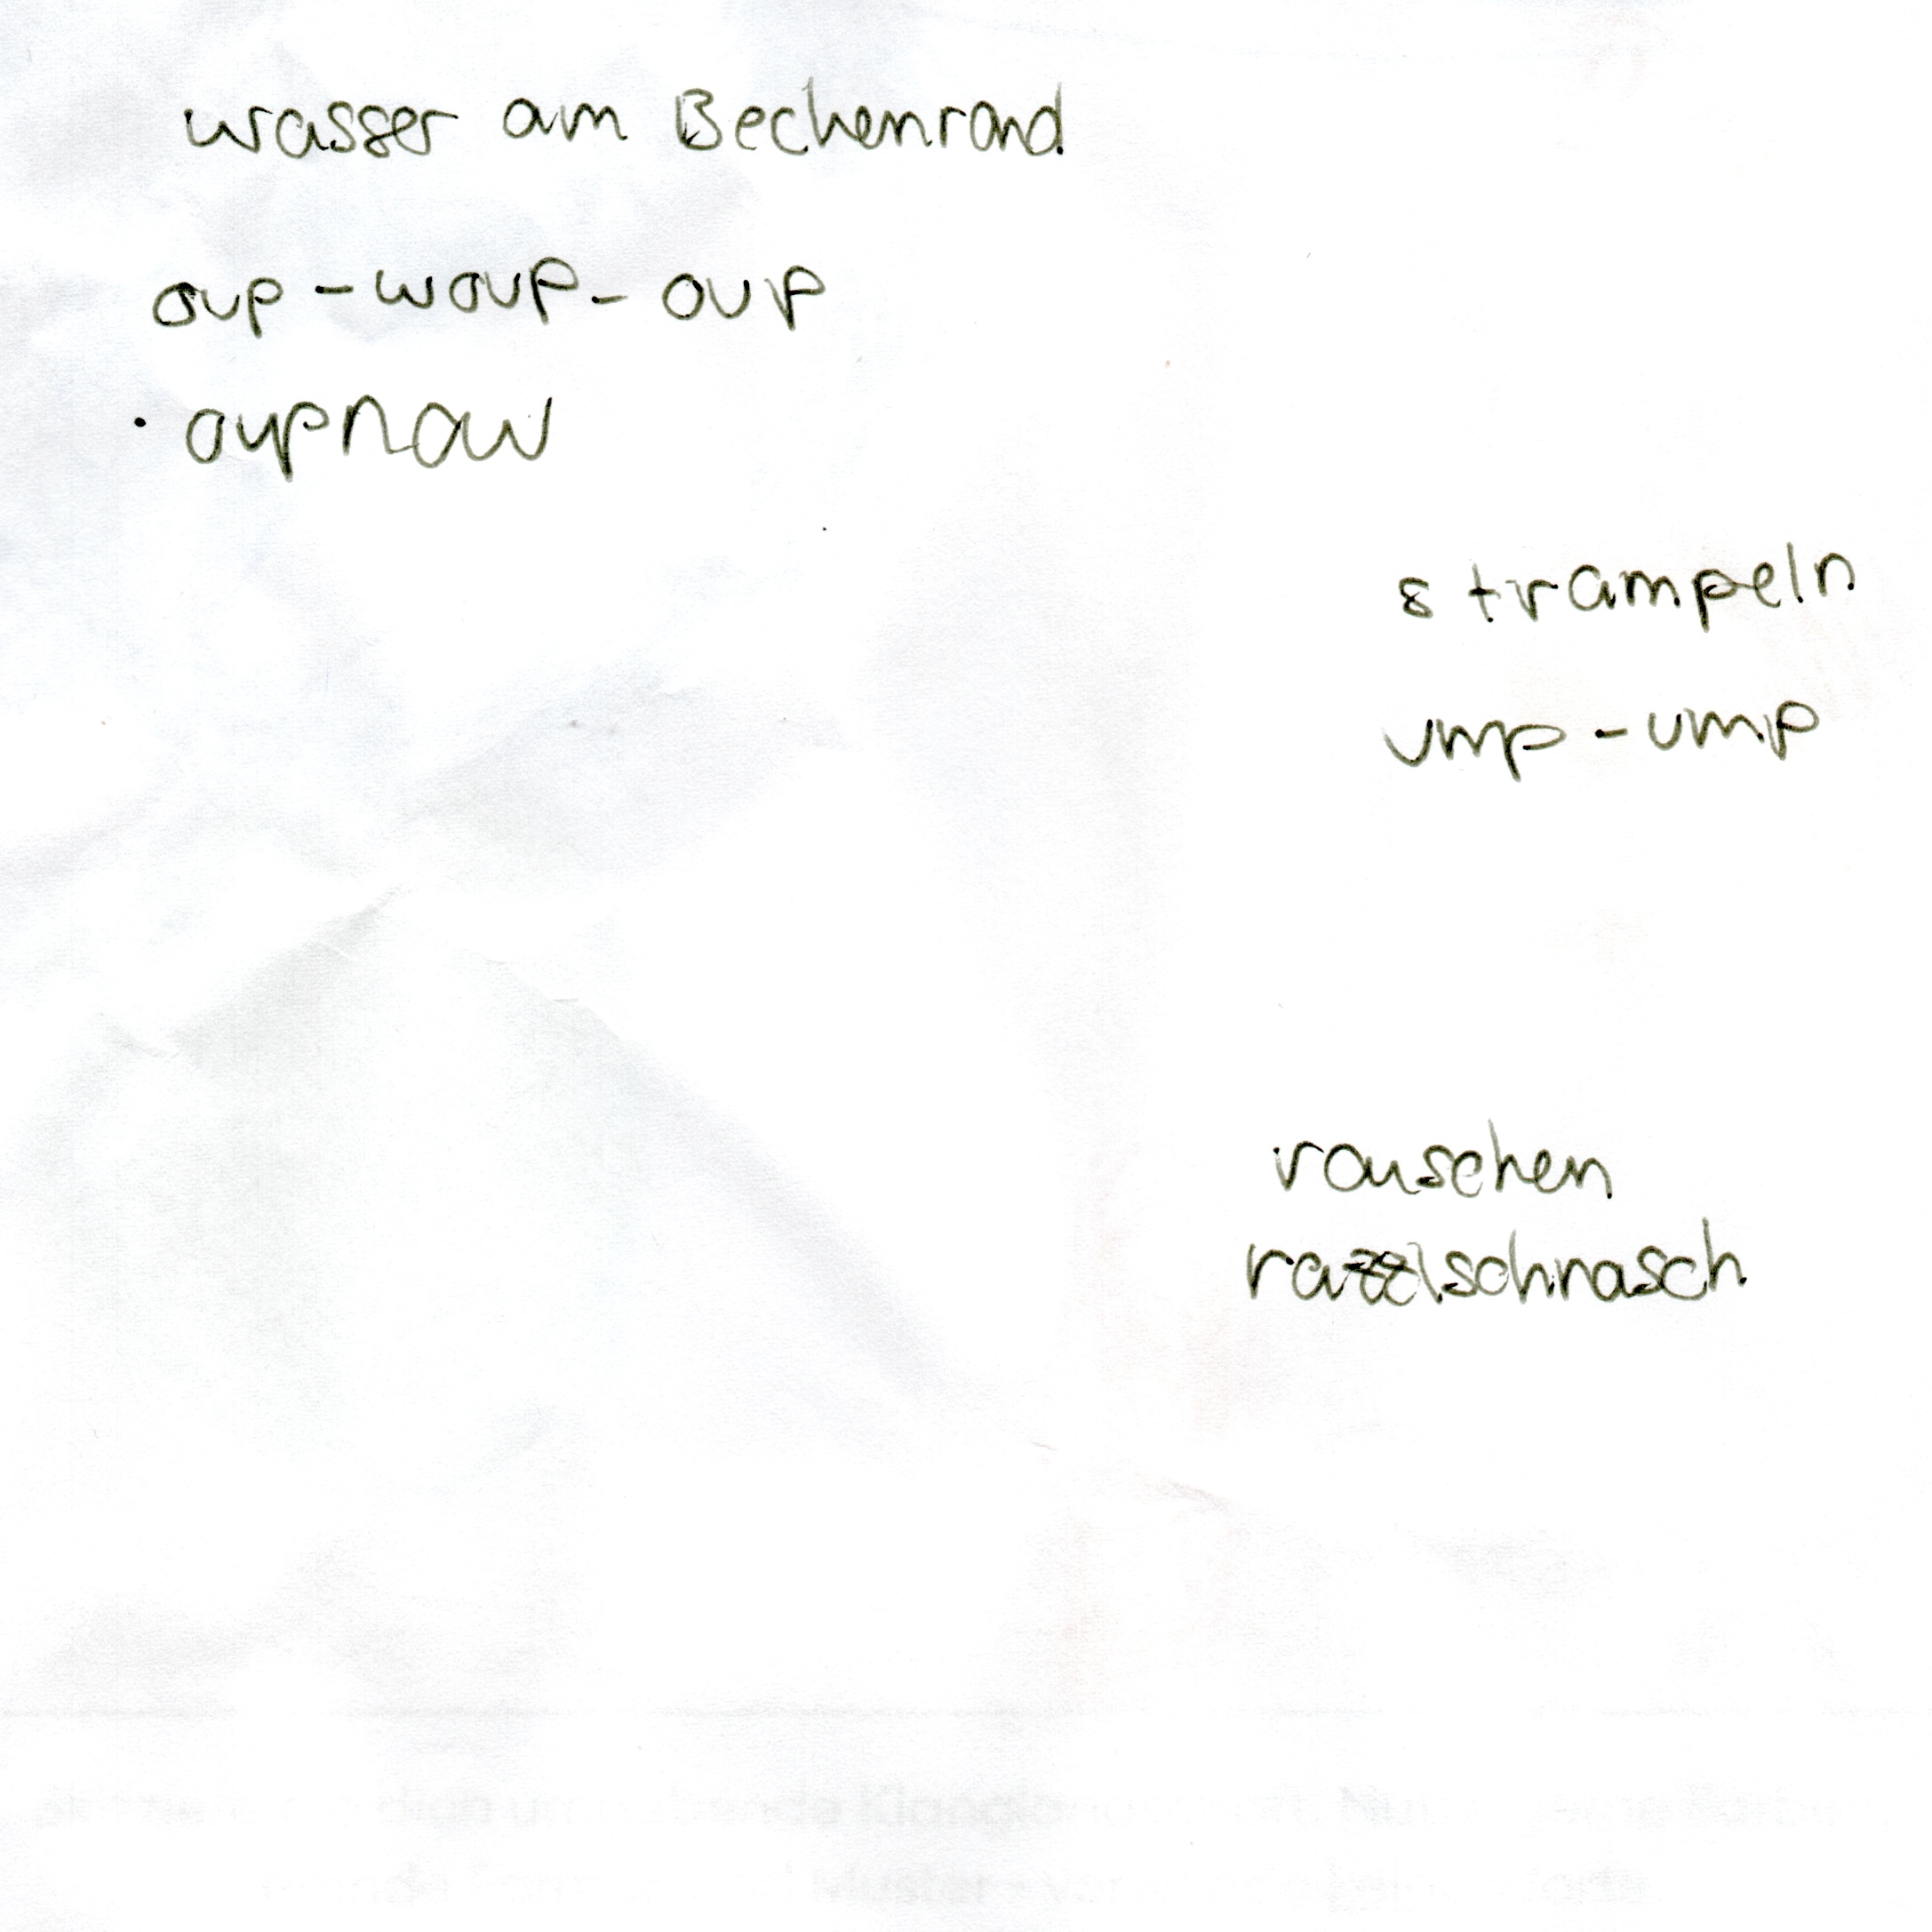 wasser am Beckenrand
oup - woup - oup
· oupnow
strampeln
ump - ump
rauschen
razzlschnasch